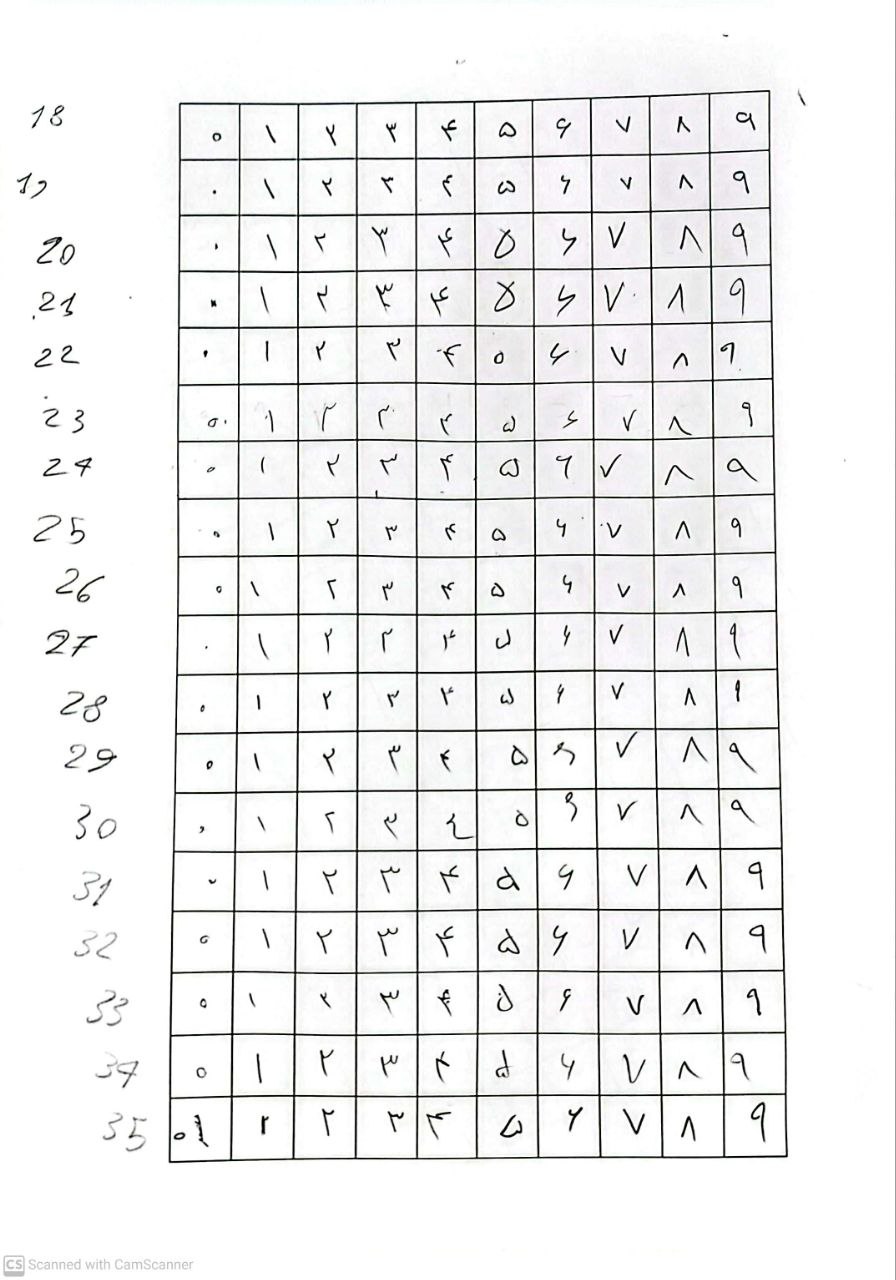 18 ۰ ۱ ۲ ۳ ۴ ۵ ۶ ۷ ۸ ۹
19 ۰ ۱ ۲ ۳ ۴ ۵ ۶ ۷ ۸ ۹
20 ۰ ۱ ۲ ۳ ۴ ۵ ۶ ۷ ۸ ۹
21 ۰ ۱ ۲ ۳ ۴ ۵ ۶ ۷ ۸ ۹
22 ۰ ۱ ۲ ۳ ۴ ۵ ۶ ۷ ۸ ۹
23 ۰ ۱ ۲ ۳ ۴ ۵ ۶ ۷ ۸ ۹
24 ۰ ۱ ۲ ۳ ۴ ۵ ۶ ۷ ۸ ۹
25 ۰ ۱ ۲ ۳ ۴ ۵ ۶ ۷ ۸ ۹
26 ۰ ۱ ۲ ۳ ۴ ۵ ۶ ۷ ۸ ۹
27 ۰ ۱ ۲ ۳ ۴ ۵ ۶ ۷ ۸ ۹
28 ۰ ۱ ۲ ۳ ۴ ۵ ۶ ۷ ۸ ۹
29 ۰ ۱ ۲ ۳ ۴ ۵ ۶ ۷ ۸ ۹
30 ۰ ۱ ۲ ۳ ۴ ۵ ۶ ۷ ۸ ۹
31 ۰ ۱ ۲ ۳ ۴ ۵ ۶ ۷ ۸ ۹
32 ۰ ۱ ۲ ۳ ۴ ۵ ۶ ۷ ۸ ۹
33 ۰ ۱ ۲ ۳ ۴ ۵ ۶ ۷ ۸ ۹
34 ۰ ۱ ۲ ۳ ۴ ۵ ۶ ۷ ۸ ۹
35 ۰ ۱ ۲ ۳ ۴ ۵ ۶ ۷ ۸ ۹
CS Scanned with CamScanner